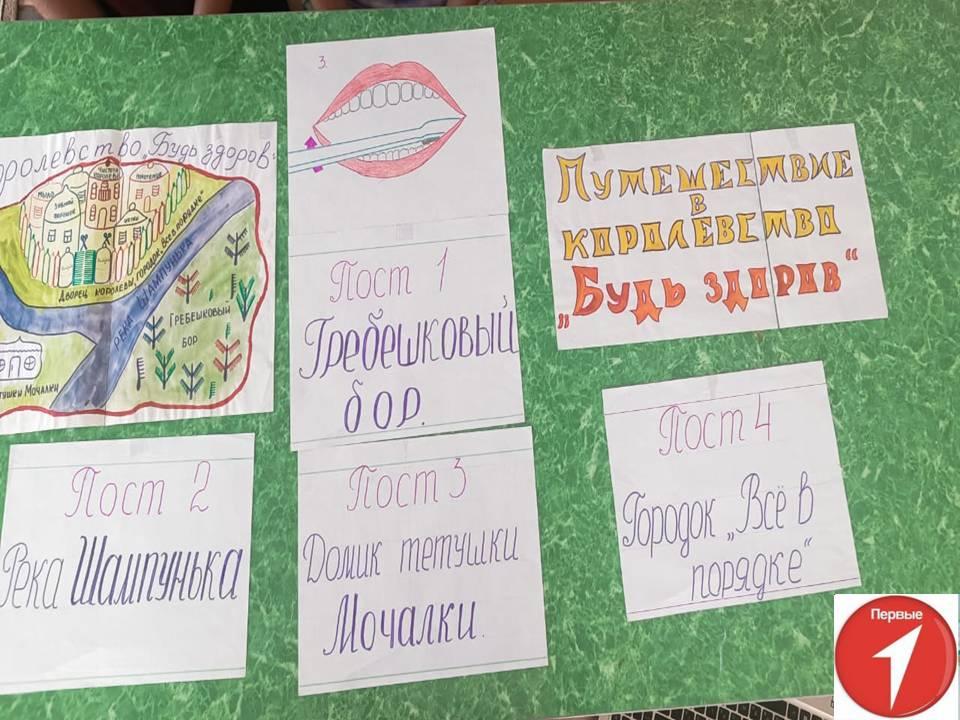 оролевство „Будь здоров
МЫЛО
ЗУБНОЙ
ПОРОШОК
ЧИСТОТЫ
КОРОЛЕВЫ
ПОЛОТЕНЦЕ
ЩЕТКИ
ДВОРЕЦ КОРОЛЕВЫ, ГОРОДОК „ВСЁ В ПОРЯДКЕ“
РЕКА ШАМПУНЬКА
ГРЕБЕШКОВЫЙ
БОР
тушки Мочалки
3.
Пост 1
Гребешковый
бор.
Путешествие
в
королевство
„Будь здоров“
Пост 2
Река Шампунька
Пост 3
Домик тетушки
Мочалки.
Пост 4
Городок „Всё в
порядке“
Первые
1